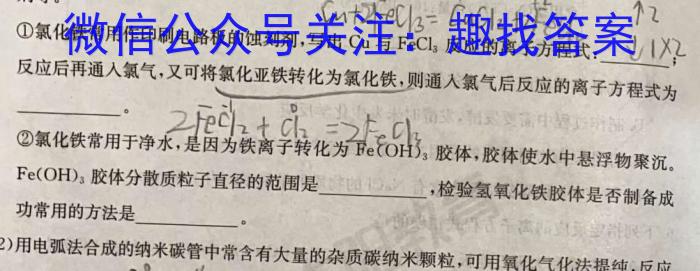 Cu+2FeCl₃=
↑2
①氯化铁常用作印刷电路板的蚀刻剂,写出 Cu 与 FeCl₃ 反应的离子方程式:
微信公众号关注:趣找答案
反应后再通入氯气,又可将氯化亚铁转化为氯化铁,则通入氯气后反应的离子方程式为
。
2FeCl₂+Cl₂=2FeCl₃
②氯化铁常用于净水,是因为铁离子转化为 Fe(OH)₃ 胶体,胶体使水中悬浮物聚沉。
Fe(OH)₃ 胶体分散质粒子直径的范围是 ,检验氢氧化铁胶体是否制备成
功常用的方法是 。
2)用电弧法合成的纳米碳管中常含有大量的杂质碳纳米颗粒,可用氧化气化法提纯,反应